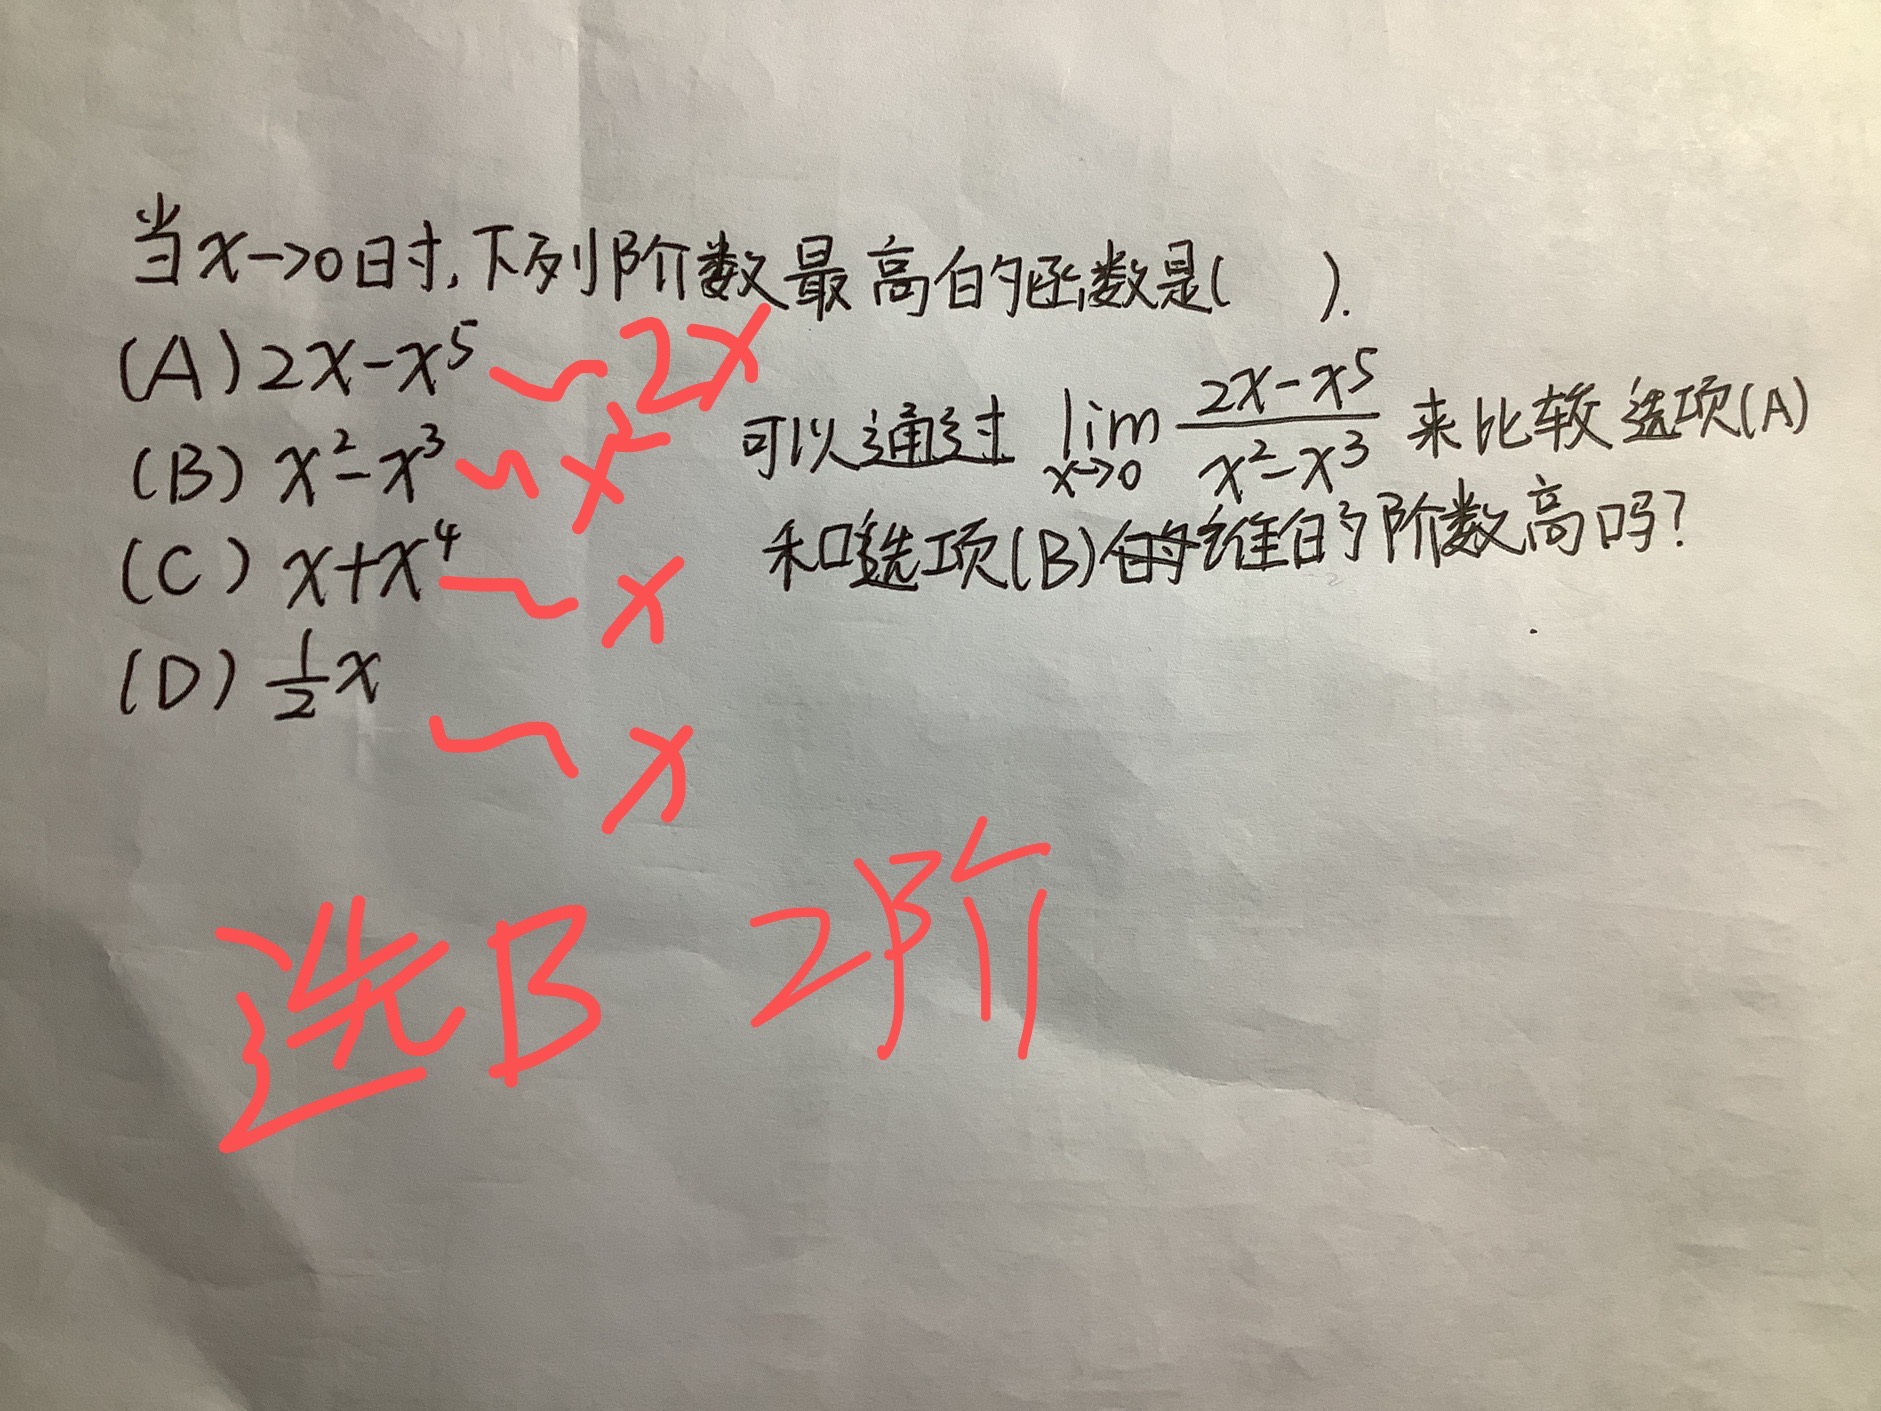 当x→0时,下列阶数最高的函数是( ).
(A) 2x-x⁵ ~ 2x
(B) x²-x³ ~ x²
(C) x+x⁴ ~ x
(D) 1/2 x ~ x
可以通过 lim x→0 (2x-x⁵)/(x²-x³) 来比较选项(A)
和选项(B)谁的阶数高吗?
选B 2阶